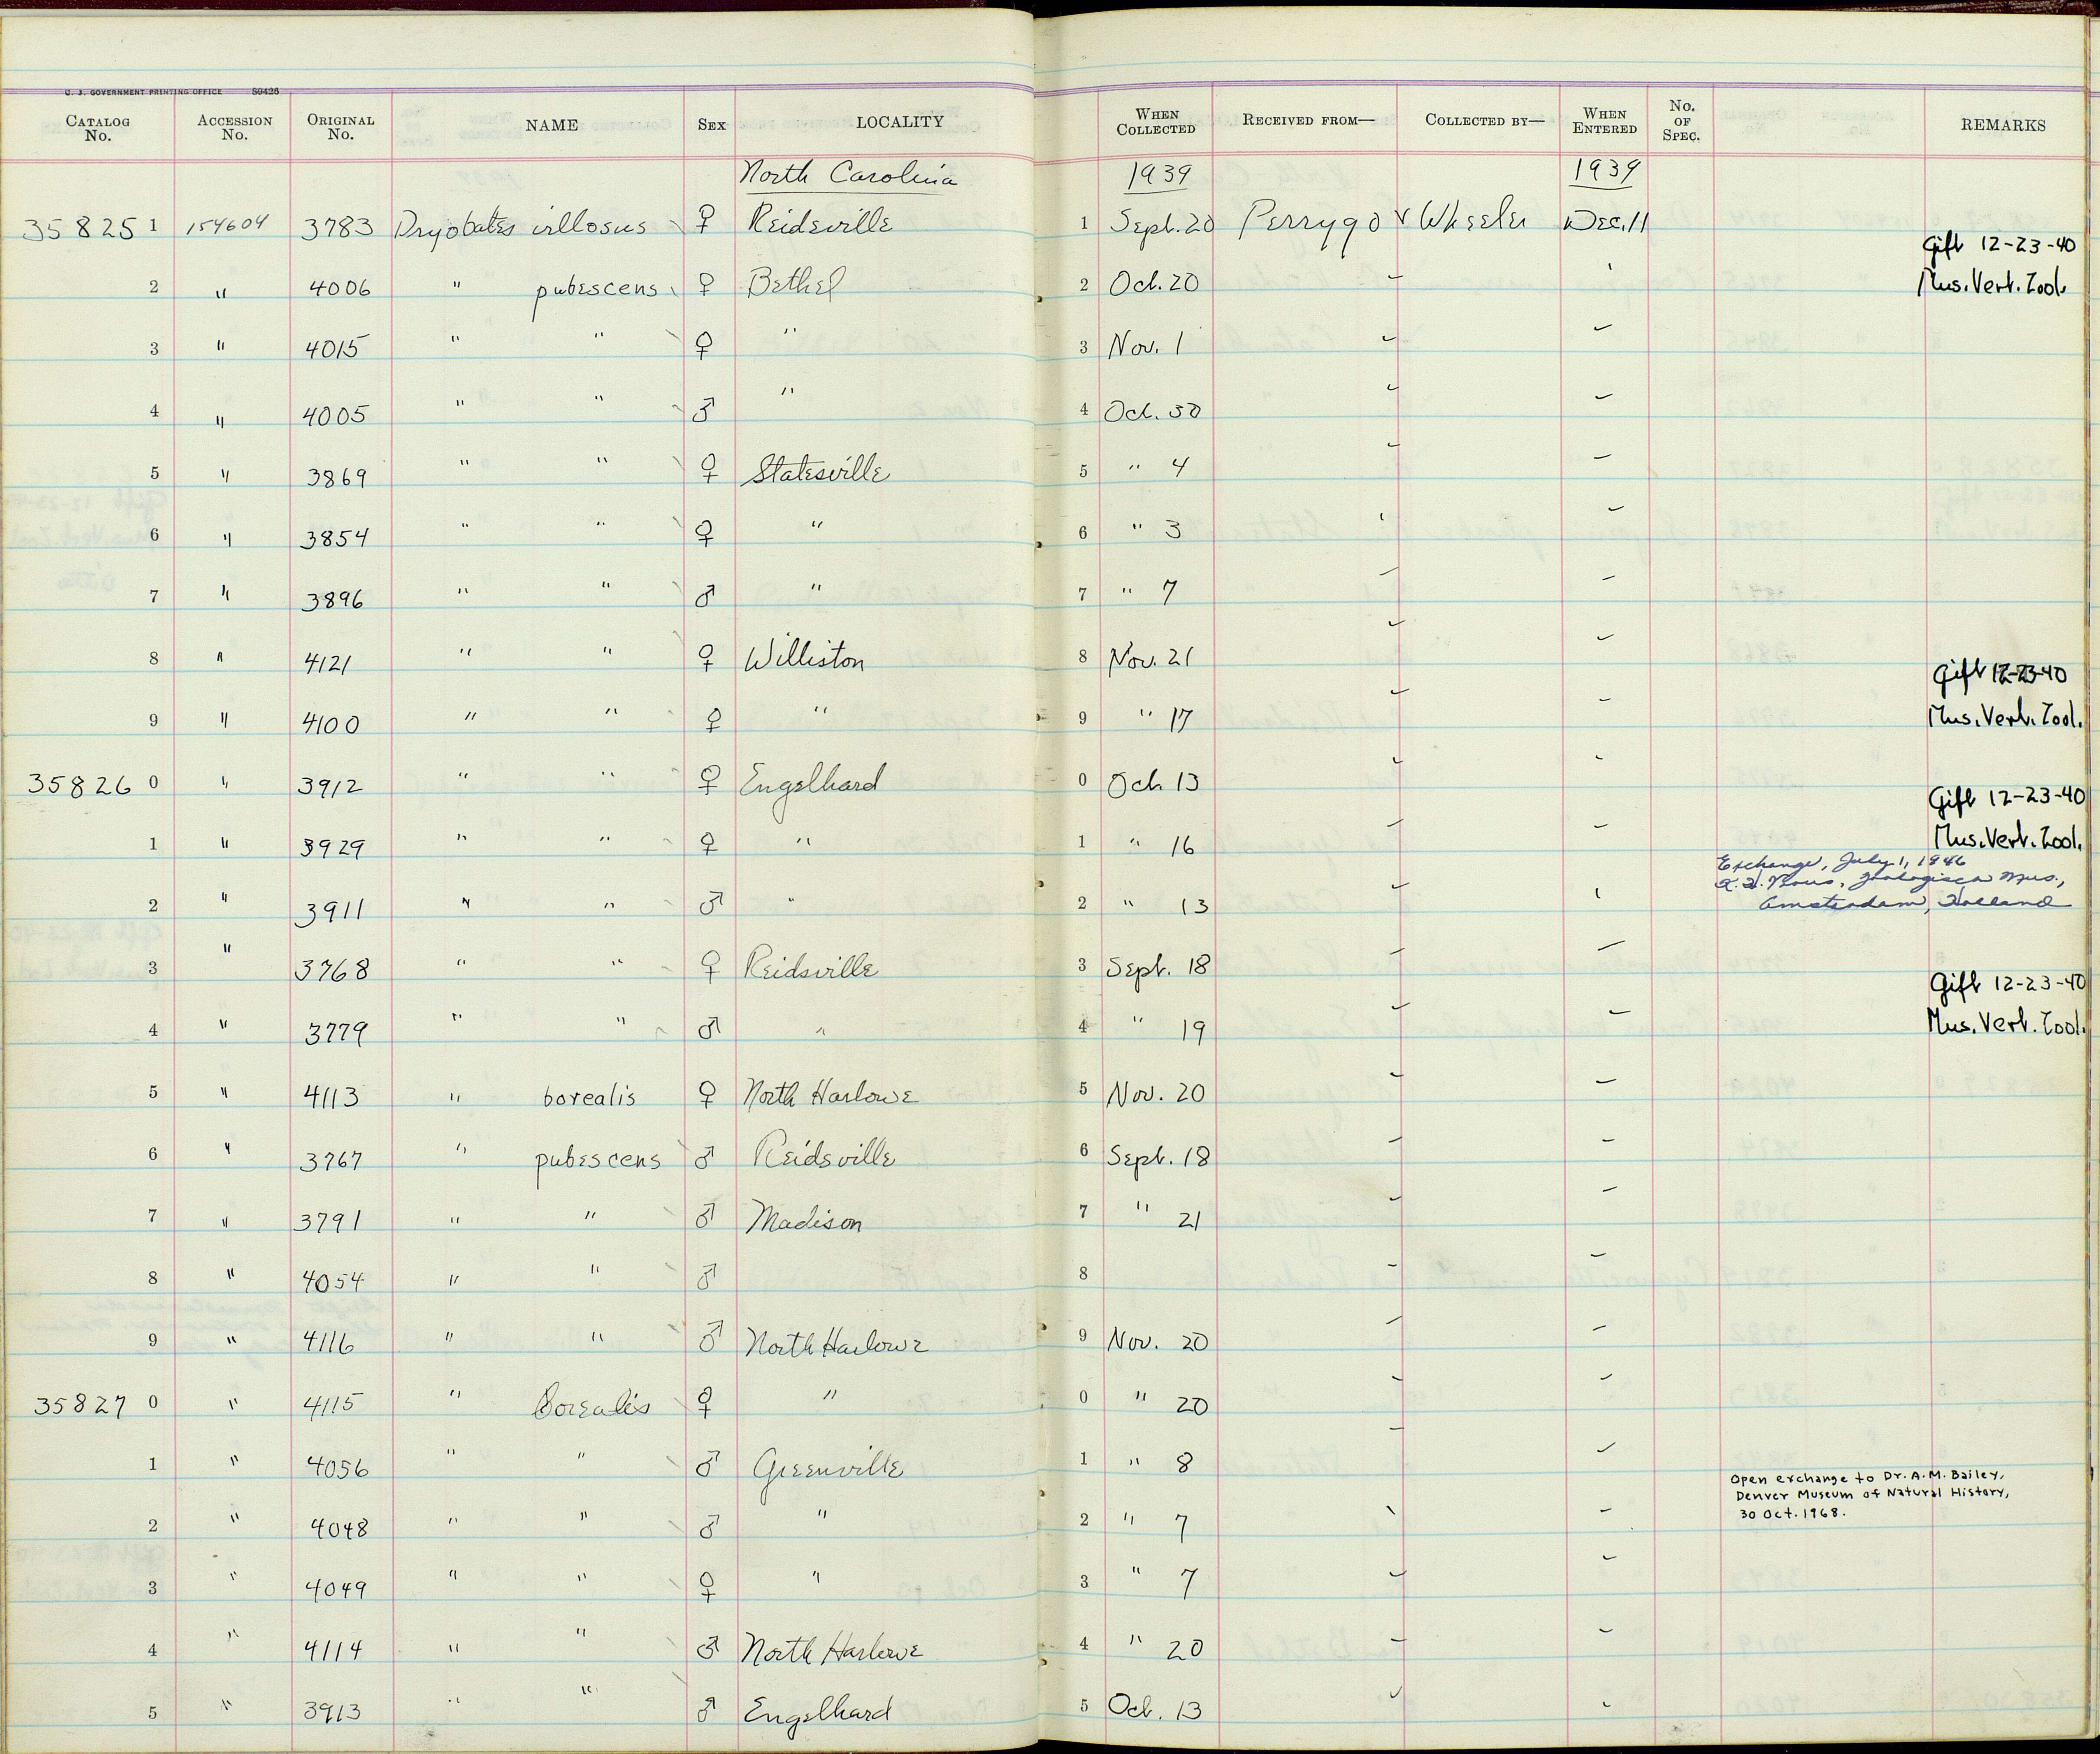 U. S. GOVERNMENT PRINTING OFFICE 80426
CATALOG No. ACCESSION No. ORIGINAL No. NAME SEX LOCALITY WHEN COLLECTED RECEIVED FROM— COLLECTED BY— WHEN ENTERED No. OF SPEC. REMARKS
North Carolina 1939 1939
35825 1 154604 3783 Dryobates villosus ♀ Reidsville 1 Sept. 20 Perrygo & Wheeler Dec. 11
Gift 12-23-40
2 " 4006 " pubescens ♀ Bethel 2 Oct. 20 Mus. Vert. Zool.
3 " 4015 " " ♀ " 3 Nov. 1
4 " 4005 " " ♂ " 4 Oct. 30
5 " 3869 " " ♀ Statesville 5 " 4
6 " 3854 " " ♀ " 6 " 3
7 " 3896 " " ♂ " 7 " 7
8 " 4121 " " ♀ Williston 8 Nov. 21
Gift 12-23-40
9 " 4100 " " ♀ " 9 " 17 Mus. Vert. Zool.
35826 0 " 3912 " " ♀ Engelhard 0 Oct. 13
Gift 12-23-40
1 " 3929 " " ♀ " 1 " 16 Mus. Vert. Zool.
Exchange, July 1, 1946
Zoologisca Mus.,
2 " 3911 " " ♂ " 2 " 13 Amsterdam, Holland
3 " 3768 " " ♀ Reidsville 3 Sept. 18
Gift 12-23-40
4 " 3779 " " ♂ " 4 " 19 Mus. Vert. Zool.
5 " 4113 " borealis ♀ North Harlowe 5 Nov. 20
6 " 3767 " pubescens ♂ Reidsville 6 Sept. 18
7 " 3791 " " ♂ Madison 7 " 21
8 " 4054 " " ♂ 8
9 " 4116 " " ♂ North Harlowe 9 Nov. 20
35827 0 " 4115 " Borealis ♀ " 0 " 20
1 " 4056 " " ♂ Greenville 1 " 8
Open exchange to Dr. A. M. Bailey,
Denver Museum of Natural History,
30 Oct. 1968.
2 " 4048 " " ♂ " 2 " 7
3 " 4049 " " ♀ " 3 " 7
4 " 4114 " " ♂ North Harlowe 4 " 20
5 " 3913 " " ♂ Engelhard 5 Oct. 13